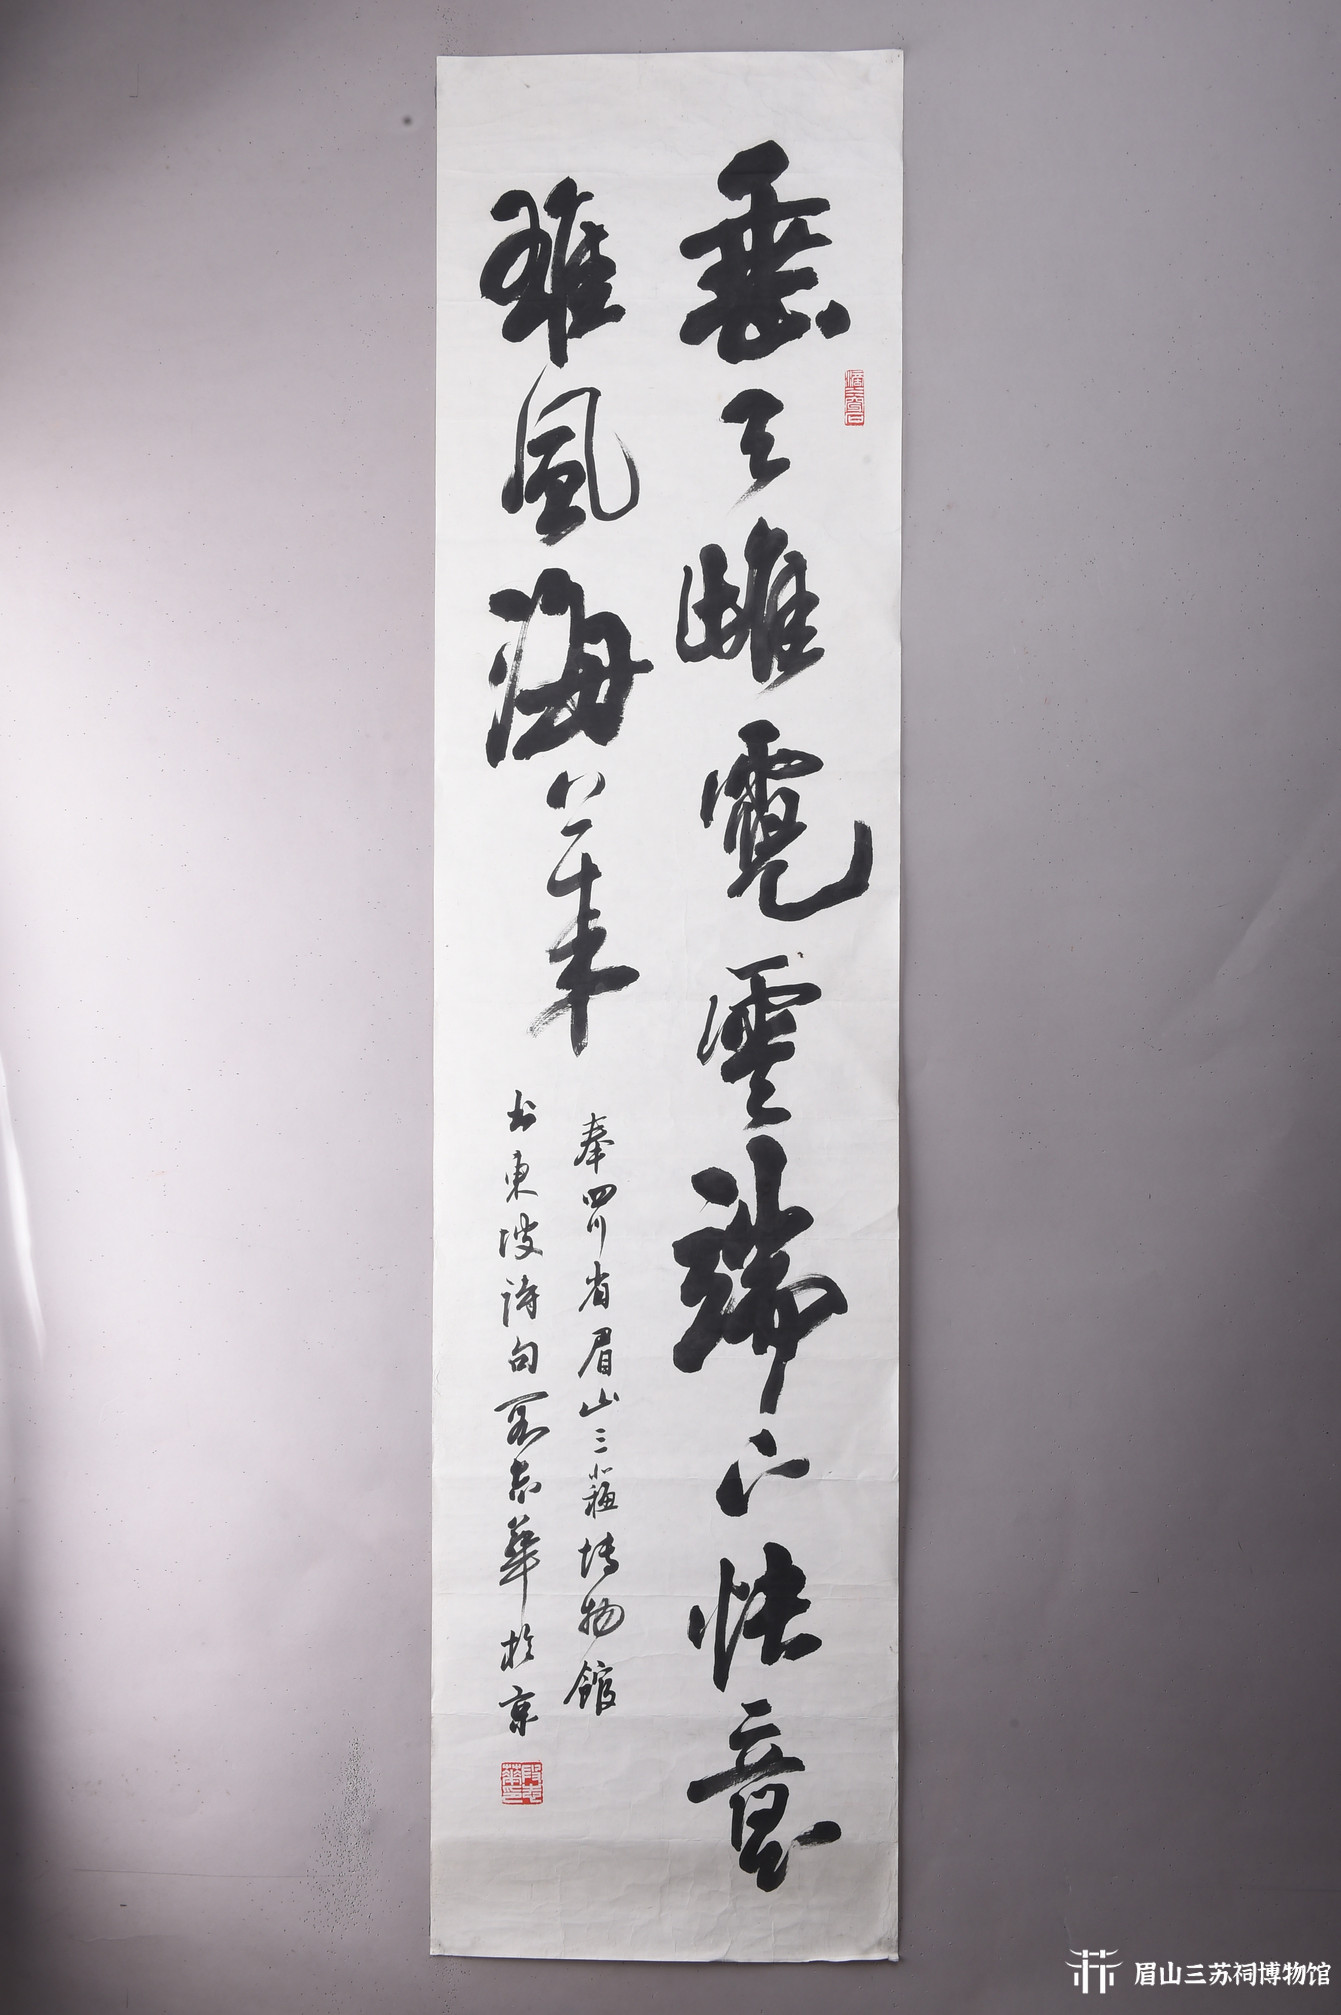 垂天雌霓雲端下快意
雄風海上来
奉四川省眉山三蘇博物館
书東坡詩句段志華於京
眉山三苏祠博物馆